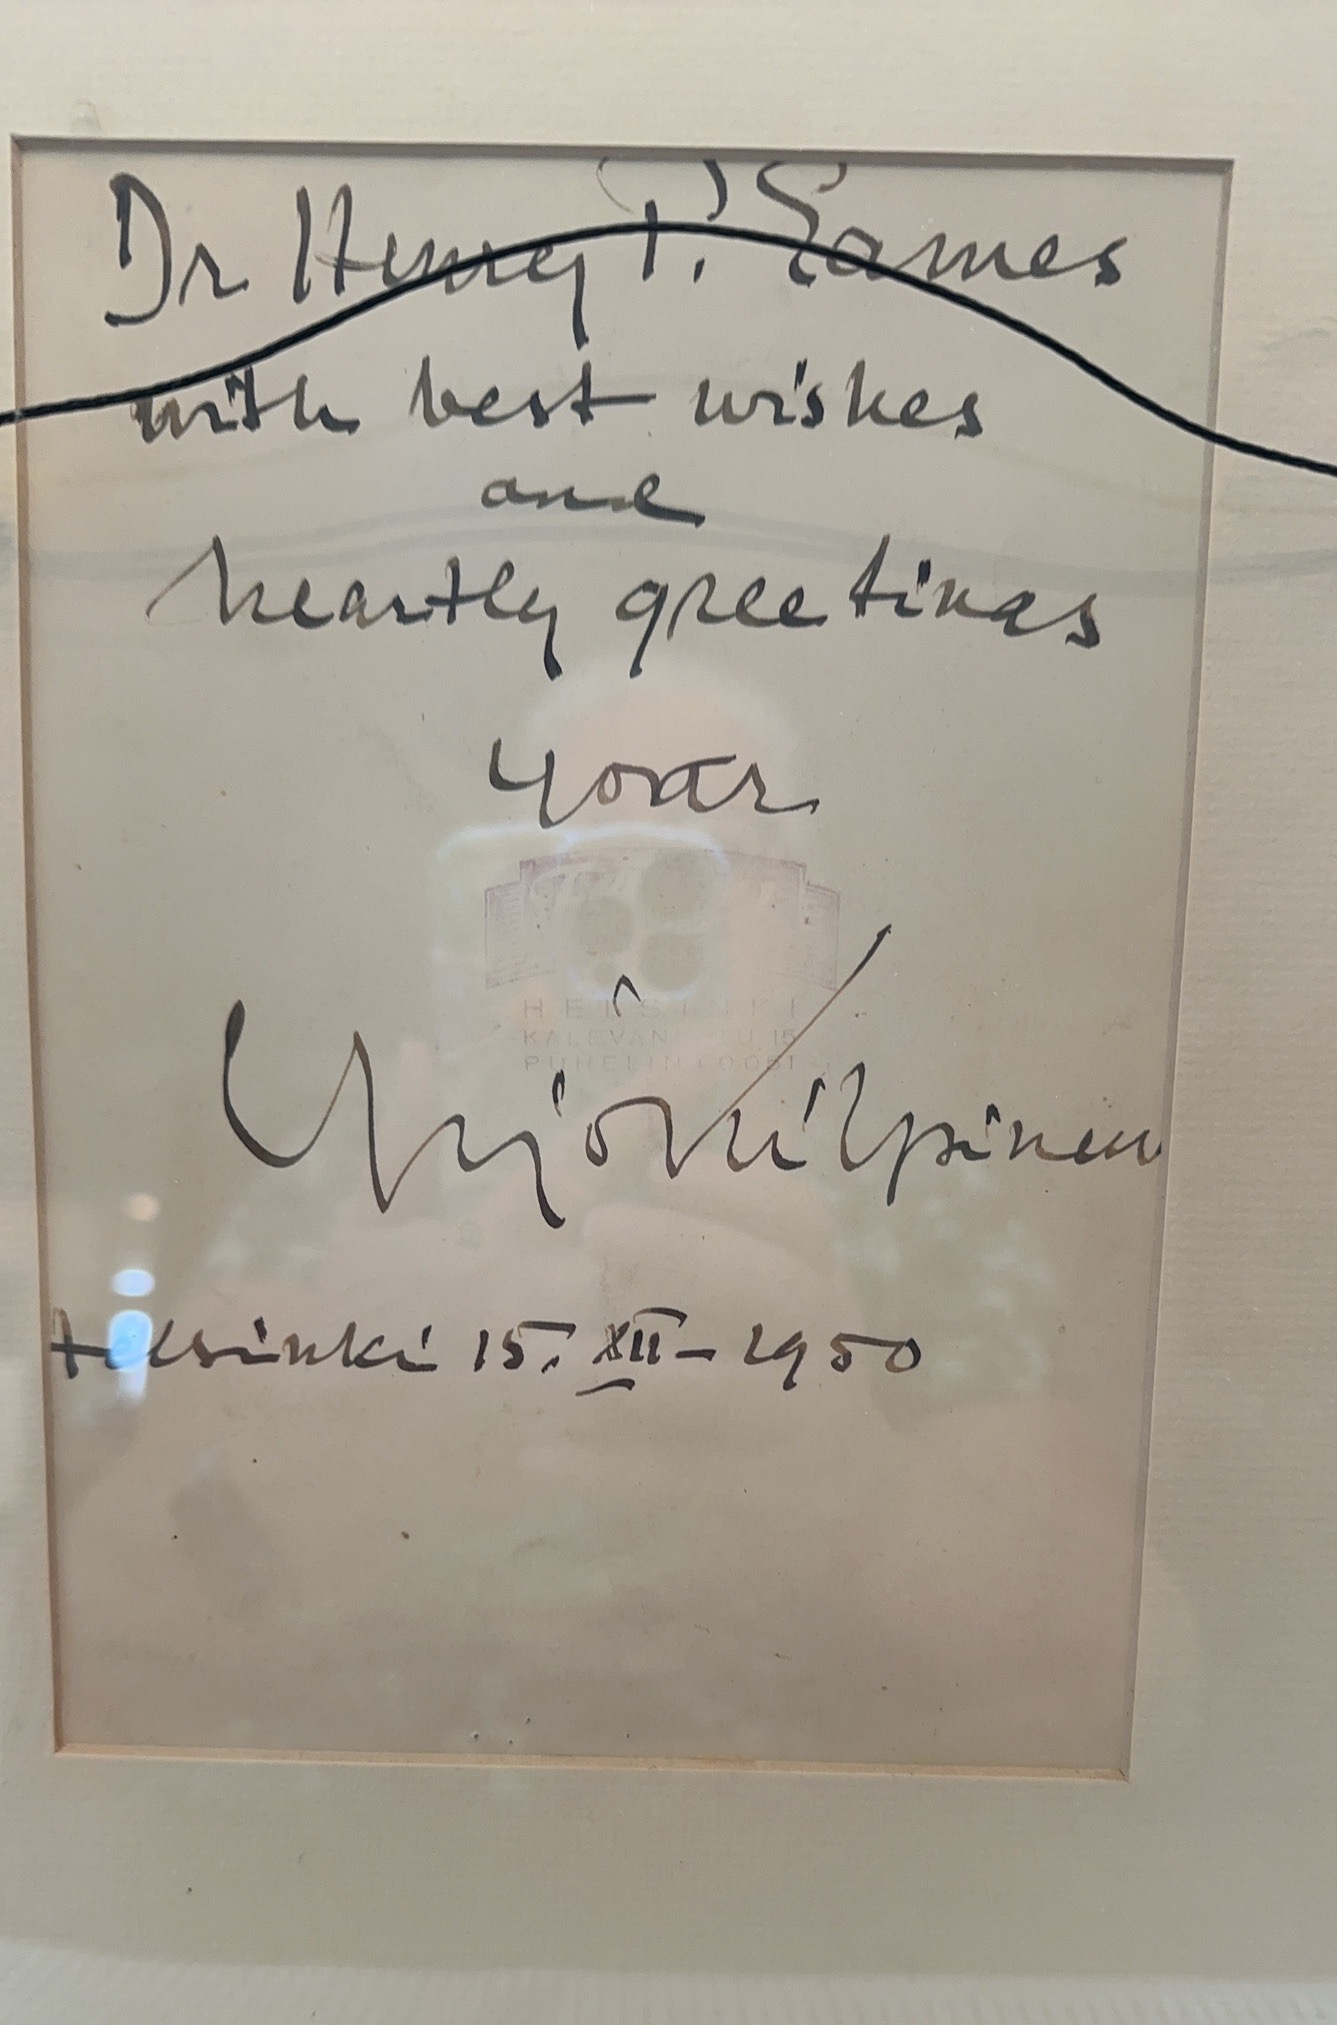 Dr Henry P. Eames
with best wishes
and
heartly greetings
your
HELSINKI
PUHELIN
Yrjö Kilpinen
Helsinki 15. XII - 1950